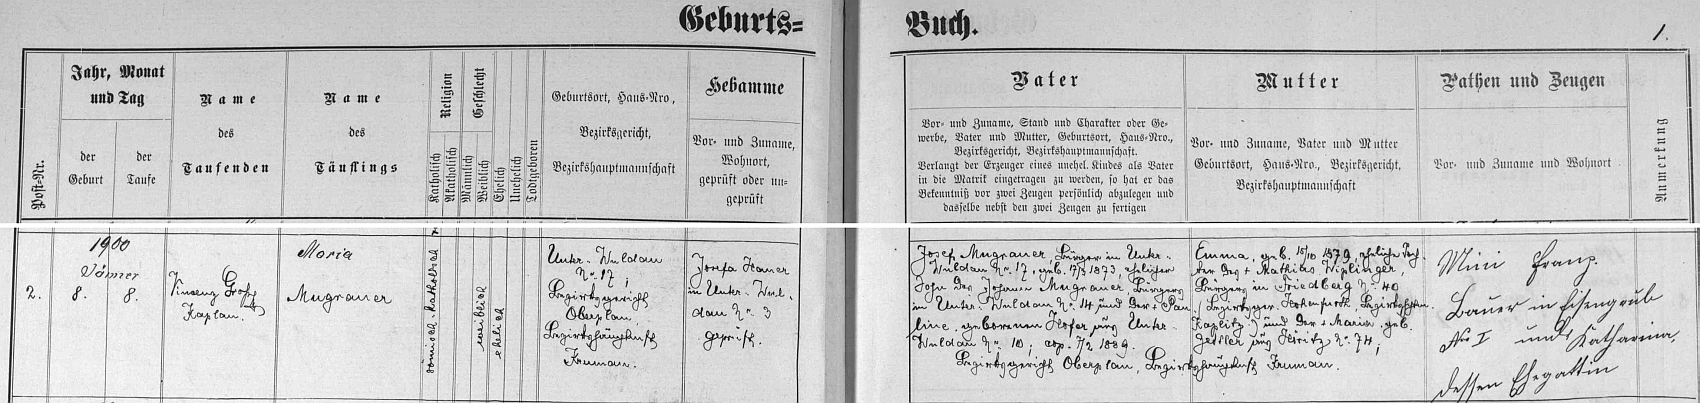 Geburts=
Buch.
1.
Post-Nr.
Jahr, Monat
und Tag
der
Geburt
der
Taufe
Name
des
Taufenden
Name
des
Täuflings
Religion
Katholisch
Akatholisch
Geschlecht
Männlich
Weiblich
Ehelich
Unehelich
Todtgeboren
Geburtsort, Haus-Nro.,
Bezirksgericht,
Bezirkshauptmannschaft
Hebamme
Vor- und Zuname,
Wohnort,
geprüft oder un-
geprüft
Vater
Vor- und Zuname, Stand und Charakter oder Ge-
werbe, Vater und Mutter, Geburtsort, Haus-Nro.,
Bezirksgericht, Bezirkshauptmannschaft.
Verlangt der Erzeuger eines unehel. Kindes als Vater
in die Matrik eingetragen zu werden, so hat er das
Bekenntniß vor zwei Zeugen persönlich abzulegen und
dasselbe nebst den zwei Zeugen zu fertigen
Mutter
Vor- und Zuname, Vater und Mutter
Geburtsort, Haus-Nro., Bezirksgericht,
Bezirkshauptmannschaft
Pathen und Zeugen
Vor- und Zuname und Wohnort
Anmerkung
2.
1900
Jänner
8. 8.
Vinzenz
Kaplan.
Maria
Mugrauer
römisch-katholisch
weiblich
ehelich
Unter-Wuldau
No. 17,
Bezirksgericht
Oberplan,
Bezirkshauptmsch
Krumau.
Josefa
in Unter-Wul-
dau No. 3
geprüft.
Josef Mugrauer, Bürger in Unter-
Wuldau No. 17, geb. 1873, ehelicher
Sohn des Johann Mugrauer, Bürgers
in Unter-Wuldau No. 14 und der + Pau-
line, geborenen Hofer aus Unter-
Wuldau No. 10; cop. 7/2 1899.
Bezirksgericht Oberplan, Bezirkshauptmsch Krumau.
Emma, geb. 15/10 1879, eheliche Toch-
ter des + Mathias Wiplinger,
Bürgers in Friedberg No. 40
(Bezirksger. Hohenfurth, Bezirkshptm.
Kaplitz) und der + Maria, geb.
aus No. 74;
Mini Franz,
Bauer in Eisengrub
No I und Katharina,
dessen Ehegattin